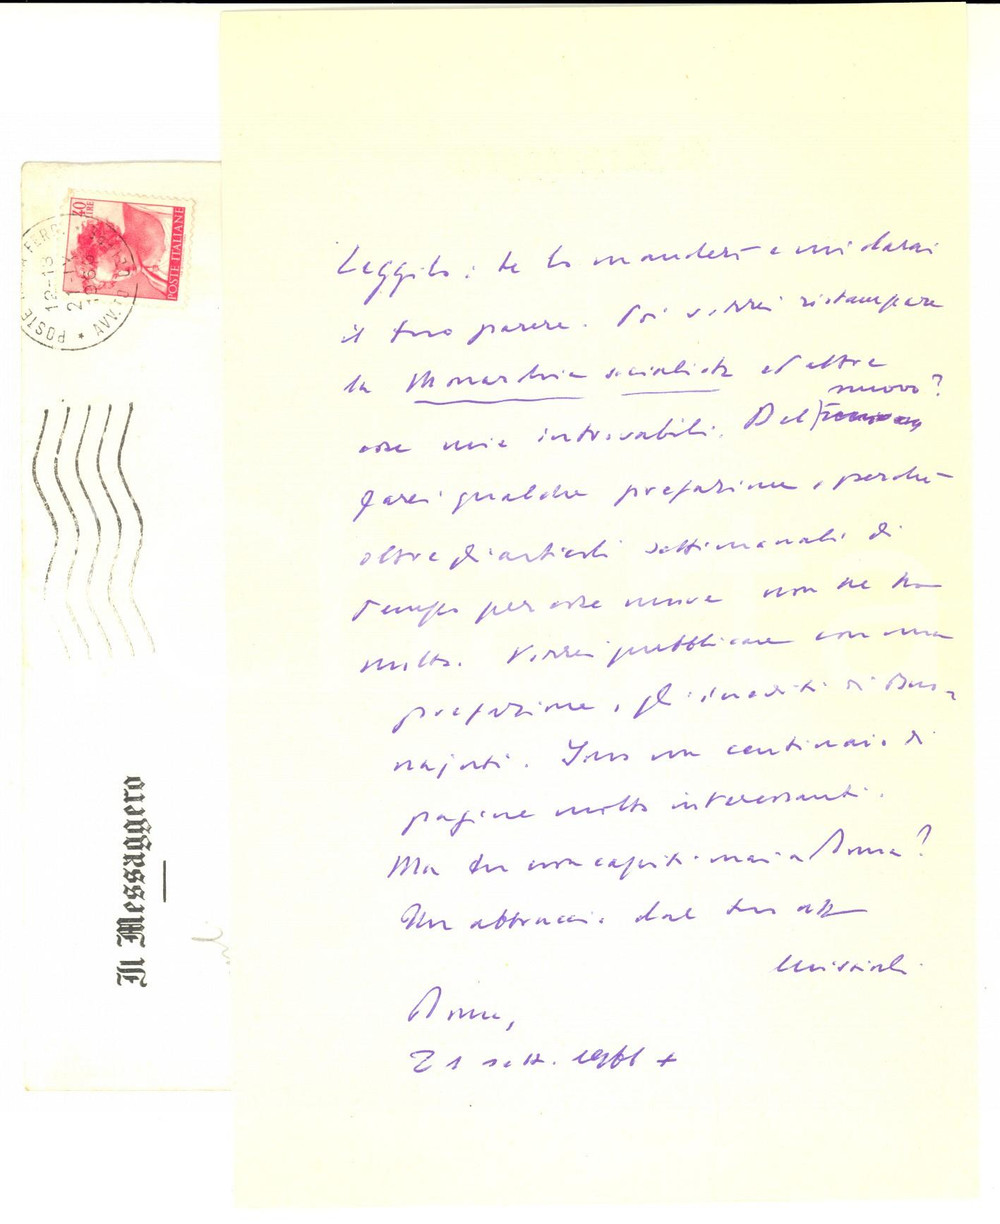 Leggilo: te lo manderò e mi darai
il tuo parere. Poi vorrei ristampare
la Monarchia socialista ed altre
cose mie introvabili. Del nuovo?
farei qualche prefazione, perché
oltre gli articoli settimanali di
tempo per cose nuove non ne ho
molto. Vorrei pubblicare con una
prefazione, gli inediti di Buo-
najuti. Sono un centinaio di
pagine molto interessanti.
Ma tu non capiti mai a Roma?
Un abbraccio dal tuo aff
Missiroli
Roma,
21 sett. 1961
40 LIRE
POSTE ITALIANE
12-13
Il Messaggero